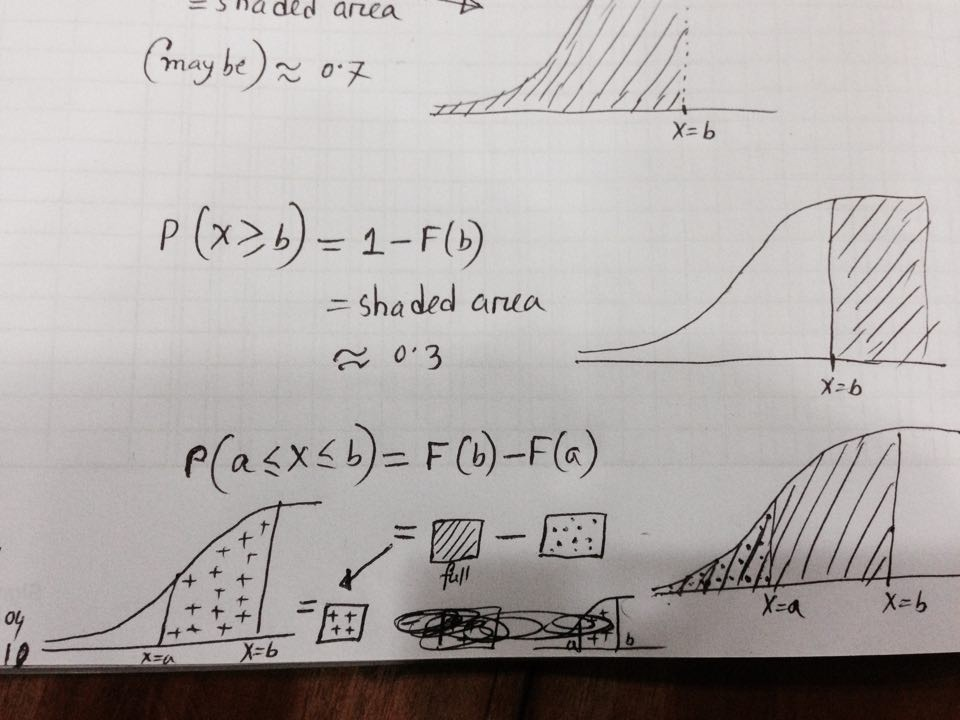 = shaded area
(maybe) ≈ 0.7
X=b
P(x≥b) = 1-F(b)
= shaded area
≈ 0.3
X=b
P(a≤x≤b) = F(b)-F(a)
= -
full
=
X=a X=b
a b
X=a X=b
04
10